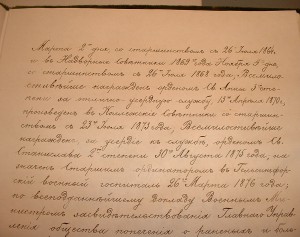 Марта 2го дня, со старшинством съ 26 Іюля 1864
и въ Надворные Советники 1869 года Ноября 5 дня,
со старшинствомъ съ 26 Іюля 1868 года, Всемило-
стивѣйше награжденъ орденомъ Св. Анны 3 сте-
пени за отлично-усердную службу, 15 Апрѣля 1870 г.,
произведенъ въ Коллежскіе Совѣтники со старшин-
ствомъ съ 25 Іюля 1873 года, Всемилостивѣйше
награжденъ, за усердіе къ службѣ, орденомъ Св.
Станислава 2 степени 30 Августа 1875 года, на-
значенъ Старшимъ ординаторомъ въ
военный госпиталь 26 Марта 1876 года;
по всеподданнѣйшему докладу Военнымъ Ми-
нистромъ засвидѣтельствованія Главнаго Управ-
ленія общества попеченія о раненыхъ и боль-